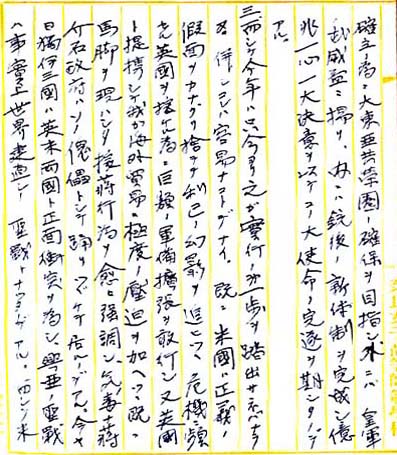 確立ノ為ニ大東亜共栄圏ノ確保ヲ目指シ 外ニハ皇軍
ノ武威益ニ揚リ、内ニハ銃後ノ新体制ヲ完成シ億
兆一心一大決意ヲ以テコノ大使命ノ完遂ヲ期シタノデ
アル。
三、而シテ今年ハ只今ヨリ之ガ実行ノ第一歩ヲ踏出サネバナラ
ヌ 併シコレハ容易ナコトデナイ。既ニ米國正義ノ
假面ヲカナグリ捨テヽ利己ノ幻影ヲ追ヒツヽ危機ニ頻
セル英國ヲ援ケル為ニ巨額ノ軍備擴張ヲ敢行シ又英國
ト提携シテ我ガ海外貿易ニ極度ノ圧迫ヲ加ヘツヽ既ニ
馬脚ヲ現ハシタ援蒋行為ヲ愈ニ強調シ、気ノ毒ナ蒋
介石政府ハソノ傀儡トシテ踊リツヾケテ居ルノデアル。今ヤ
日獨伊三國ハ英米両國ト正面衝突ヲ為シ、興亜ノ聖戦
ハ事実上世界建直シノ聖戦トナツタノデアル。